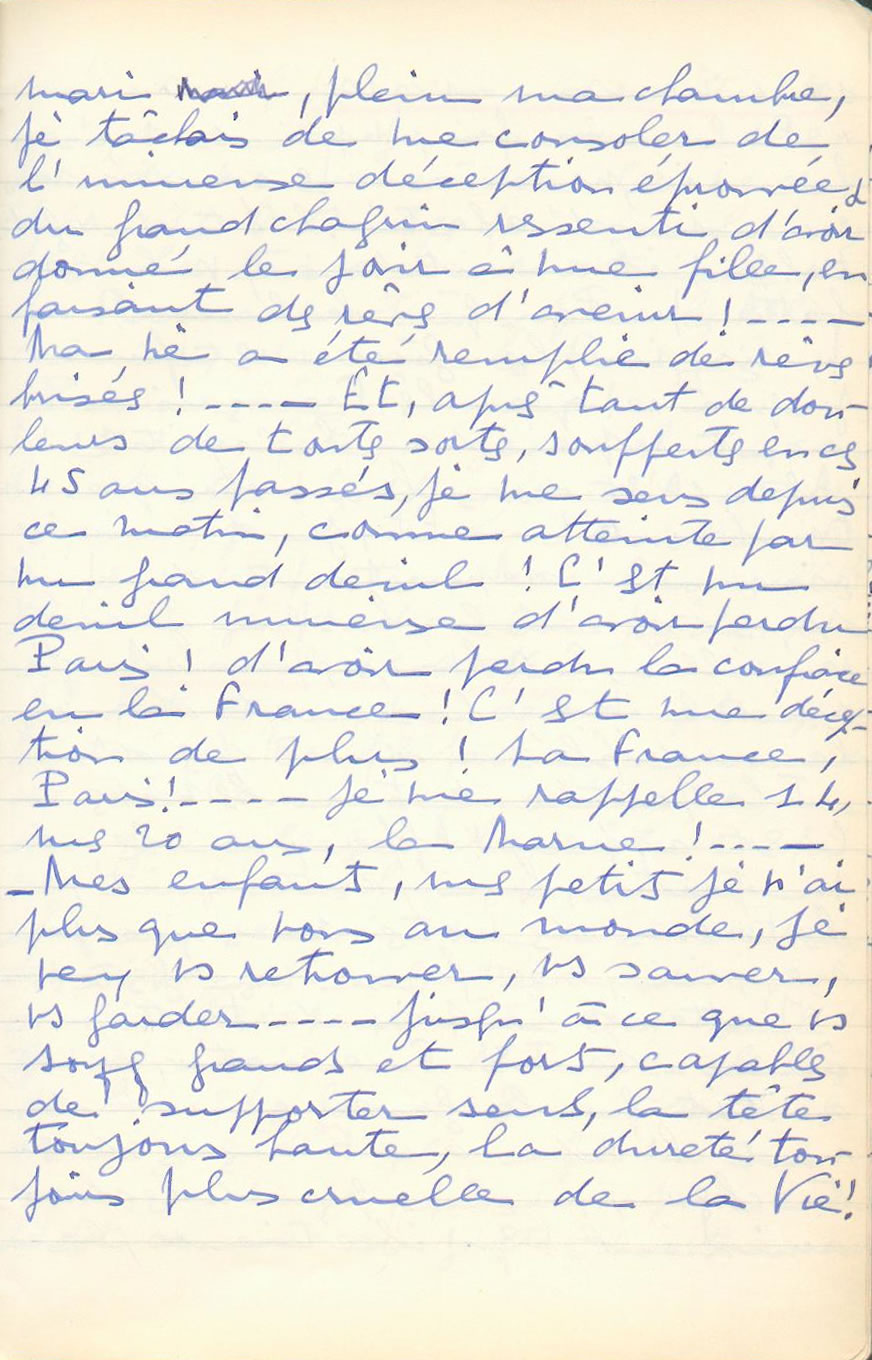 mari, plein ma chambre,
je tâchais de me consoler de
l'immense déception éprouvée &
du grand chagrin ressenti d'avoir
donné le jour à une fille, en
faisant des rêves d'avenir ! ----
Ma vie a été remplie de rêves
brisés ! ---- Et, après tant de dou-
leurs de toutes sortes, soufferts en ces
45 ans passés, je me sens depuis
ce matin, comme atteinte par
un grand deuil ! C'est un
deuil immense d'avoir perdu
Paris ! d'avoir perdu la confiance
en la France ! C'est une décep-
tion de plus ! La France,
Paris ! ---- je me rappelle 14,
mes 20 ans, la Marne ! ----
- Mes enfants, mes petits je n'ai
plus que vous au monde, je
veux vs retrouver, vs sauver,
vs garder ---- jusqu'à ce que vs
soyez grands et forts, capables
de supporter seuls, la tête
toujours haute, la dureté tou-
jours plus cruelle de la Vie !